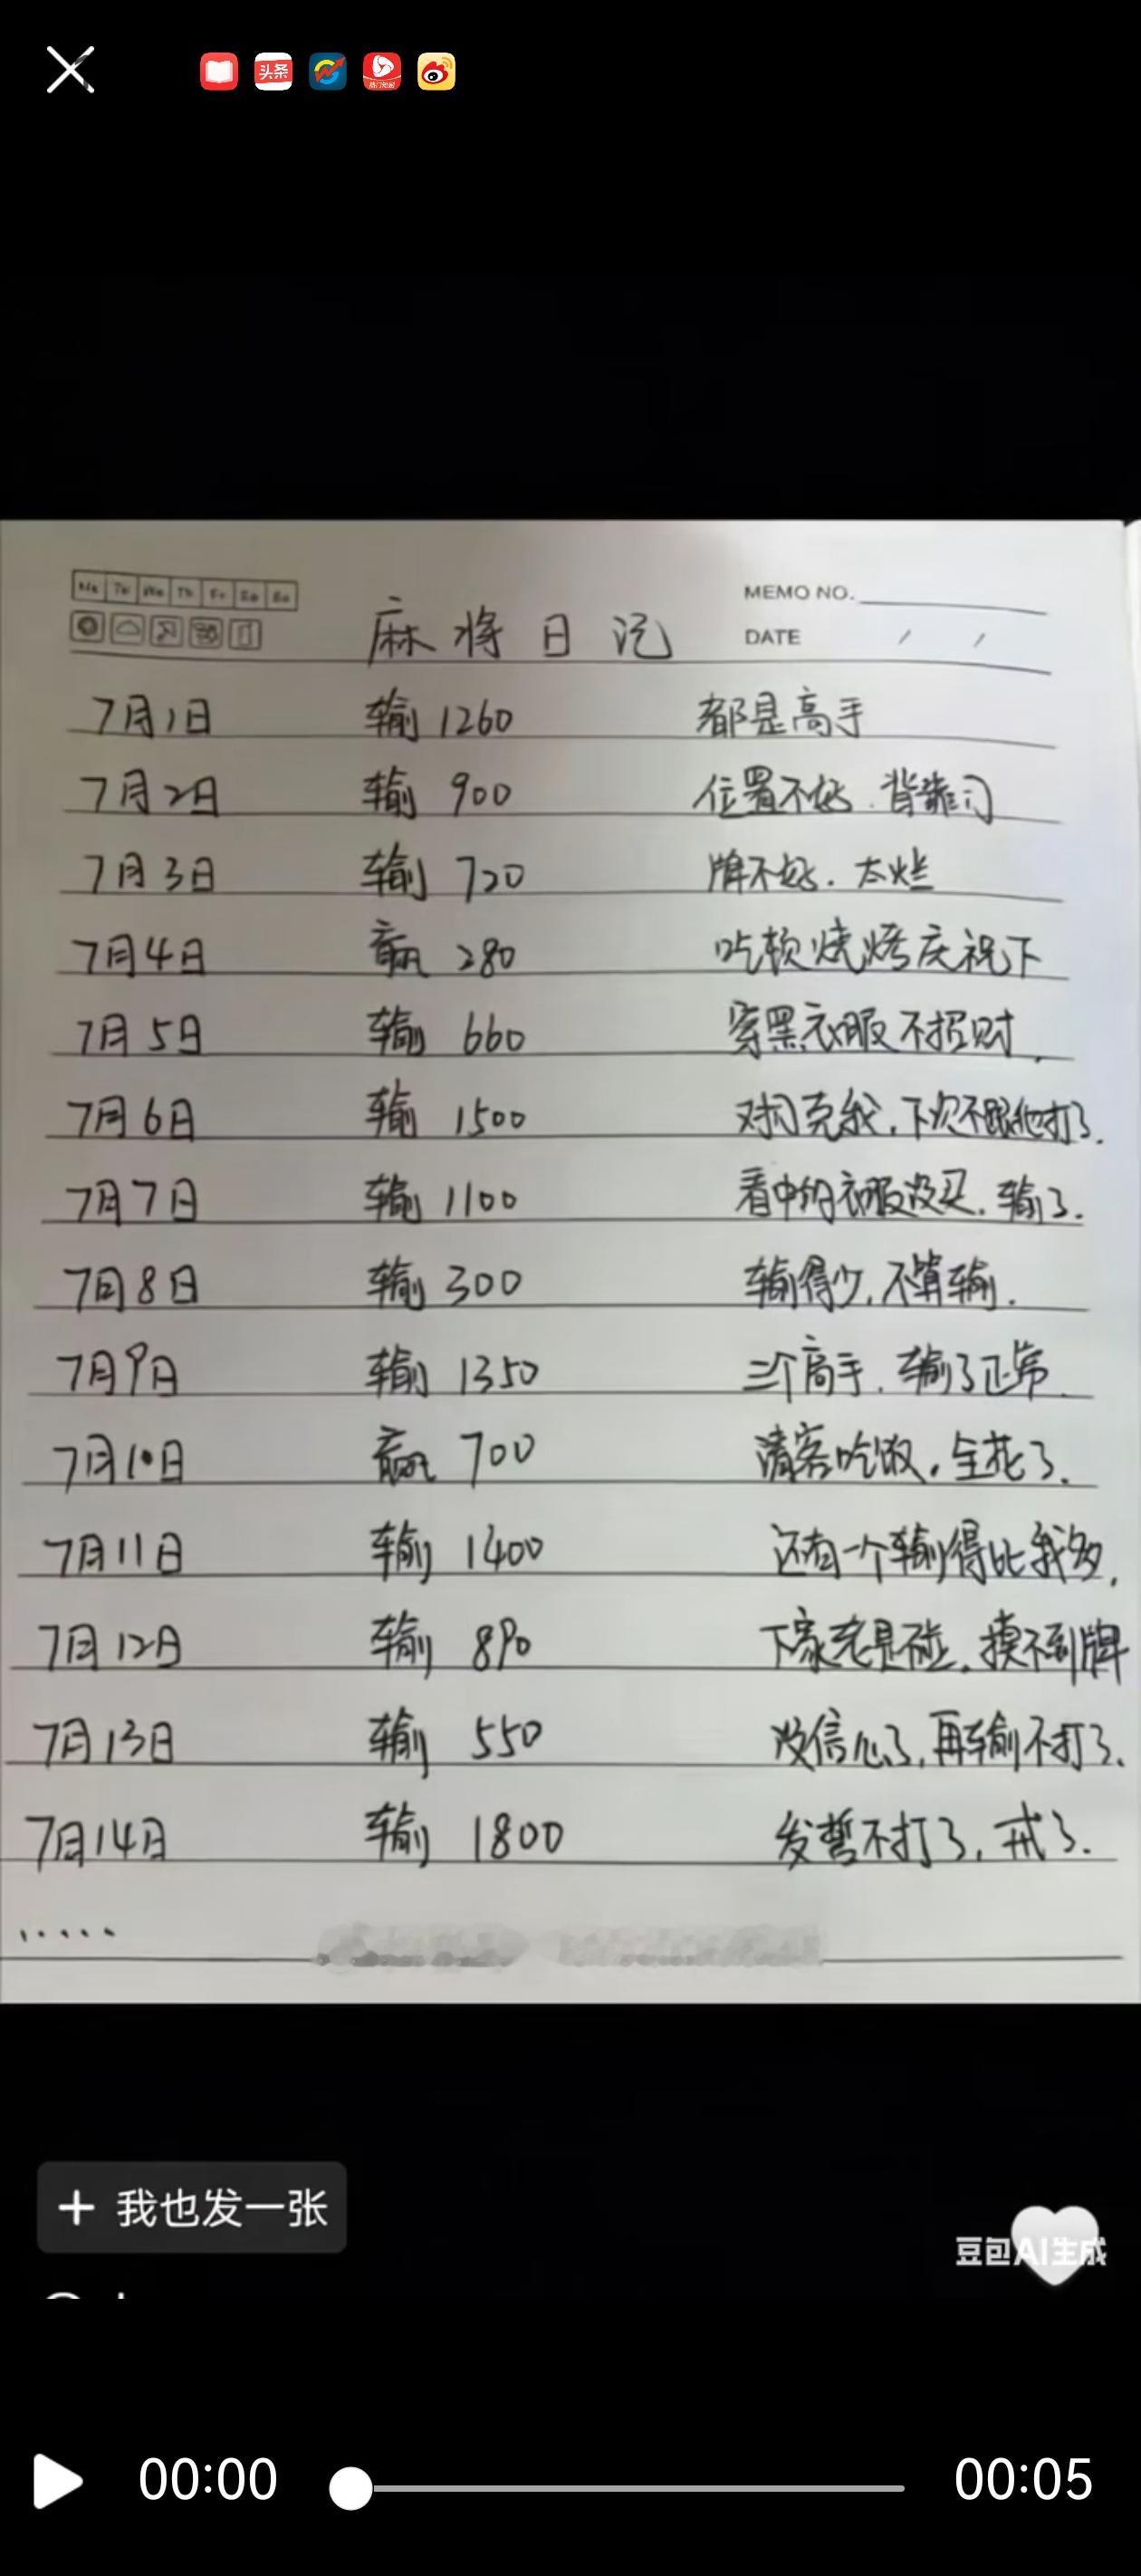 头条
热门短剧
Mo Tu We Th Fr Sa Su
MEMO NO.
麻将日记
DATE / /
7月1日 输1260 都是高手
7月2日 输 900 位置不好.背靠门
7月3日 输 720 牌不好.太烂
7月4日 赢 280 吃顿烧烤庆祝下
7月5日 输 660 穿黑衣服不招财.
7月6日 输 1500 对门克我,下次不跟他打了.
7月7日 输 1100 看中的衣服没买.输了.
7月8日 输 300 输得少,不算输.
7月9日 输 1350 三个高手.输了正常.
7月10日 赢 700 请客吃饭,全花了.
7月11日 输 1400 还有一个输得比我多,
7月12日 输 890 下家老是碰,摸不到牌
7月13日 输 550 没信心了,再输不打了.
7月14日 输 1800 发誓不打了,戒了.
.....
+ 我也发一张
豆包AI生成
00:00
00:05